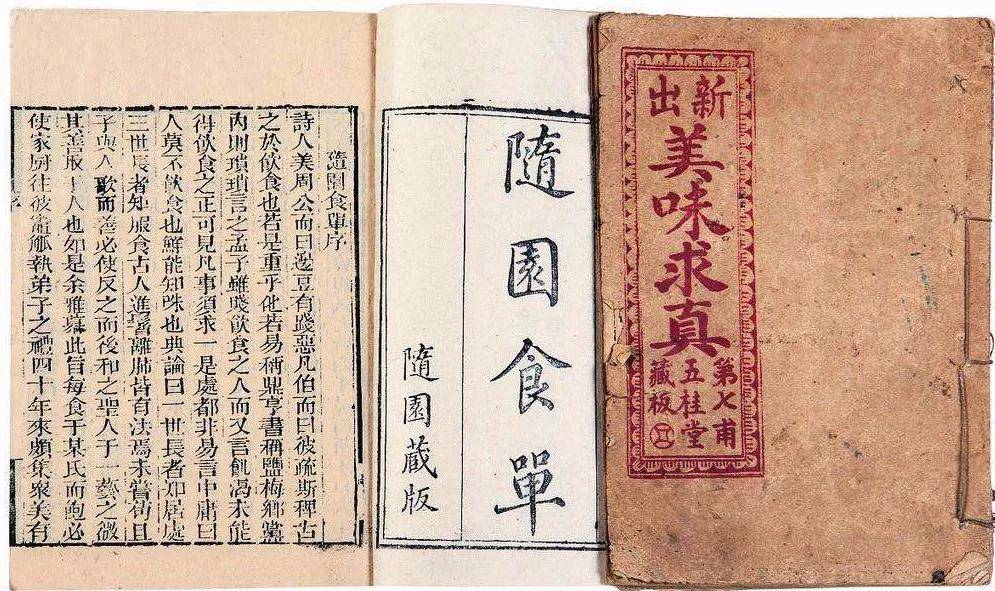 新出
美味求真
第七甫
五桂堂
藏板
隨園食單
隨園蔵版
隨園食單序
詩人美周公而曰籩豆有踐惡凡伯而曰彼疏斯稗古
之於飲食也若是重乎他若易稱鼎亨書稱鹽梅鄉黨
內則瑣瑣言之孟子雖賤飲食之人而又言飢渴未能
得飲食之正可見凡事須求一是處都非易言中庸曰
人莫不飲食也鮮能知味也典論曰一世長者知居處
三世長者知服食古人進鬐離肺皆有法焉未嘗苟且
子與人歌而善必使反之而後和之聖人于一藝之微
其善取于人也如是余雅慕此旨每食于某氏而飽必
使家廚往彼竈觚執弟子之禮四十年來頗集衆美有